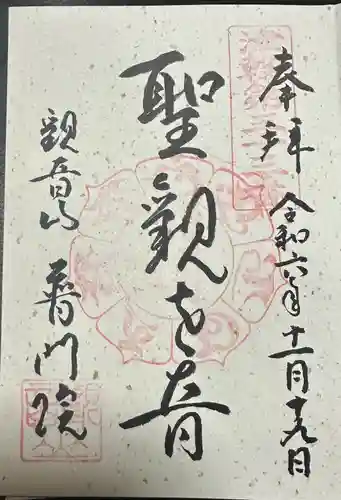 奉拝
令和六年十一月十九日
聖観世音
観音山 普門院